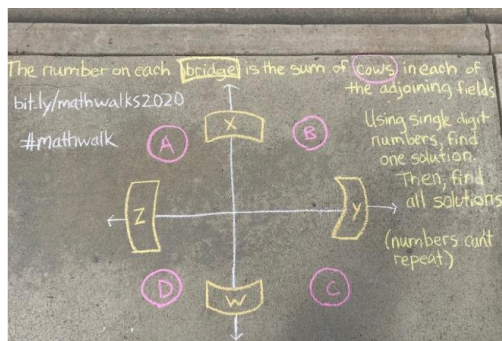 The number on each bridge is the sum of cows in each of
the adjoining fields
bit.ly/mathwalks2020
#mathwalk
Using single digit
numbers, find
one solution.
Then, find
all solutions
(numbers can't
repeat)
X
A
B
Z
Y
D
W
C